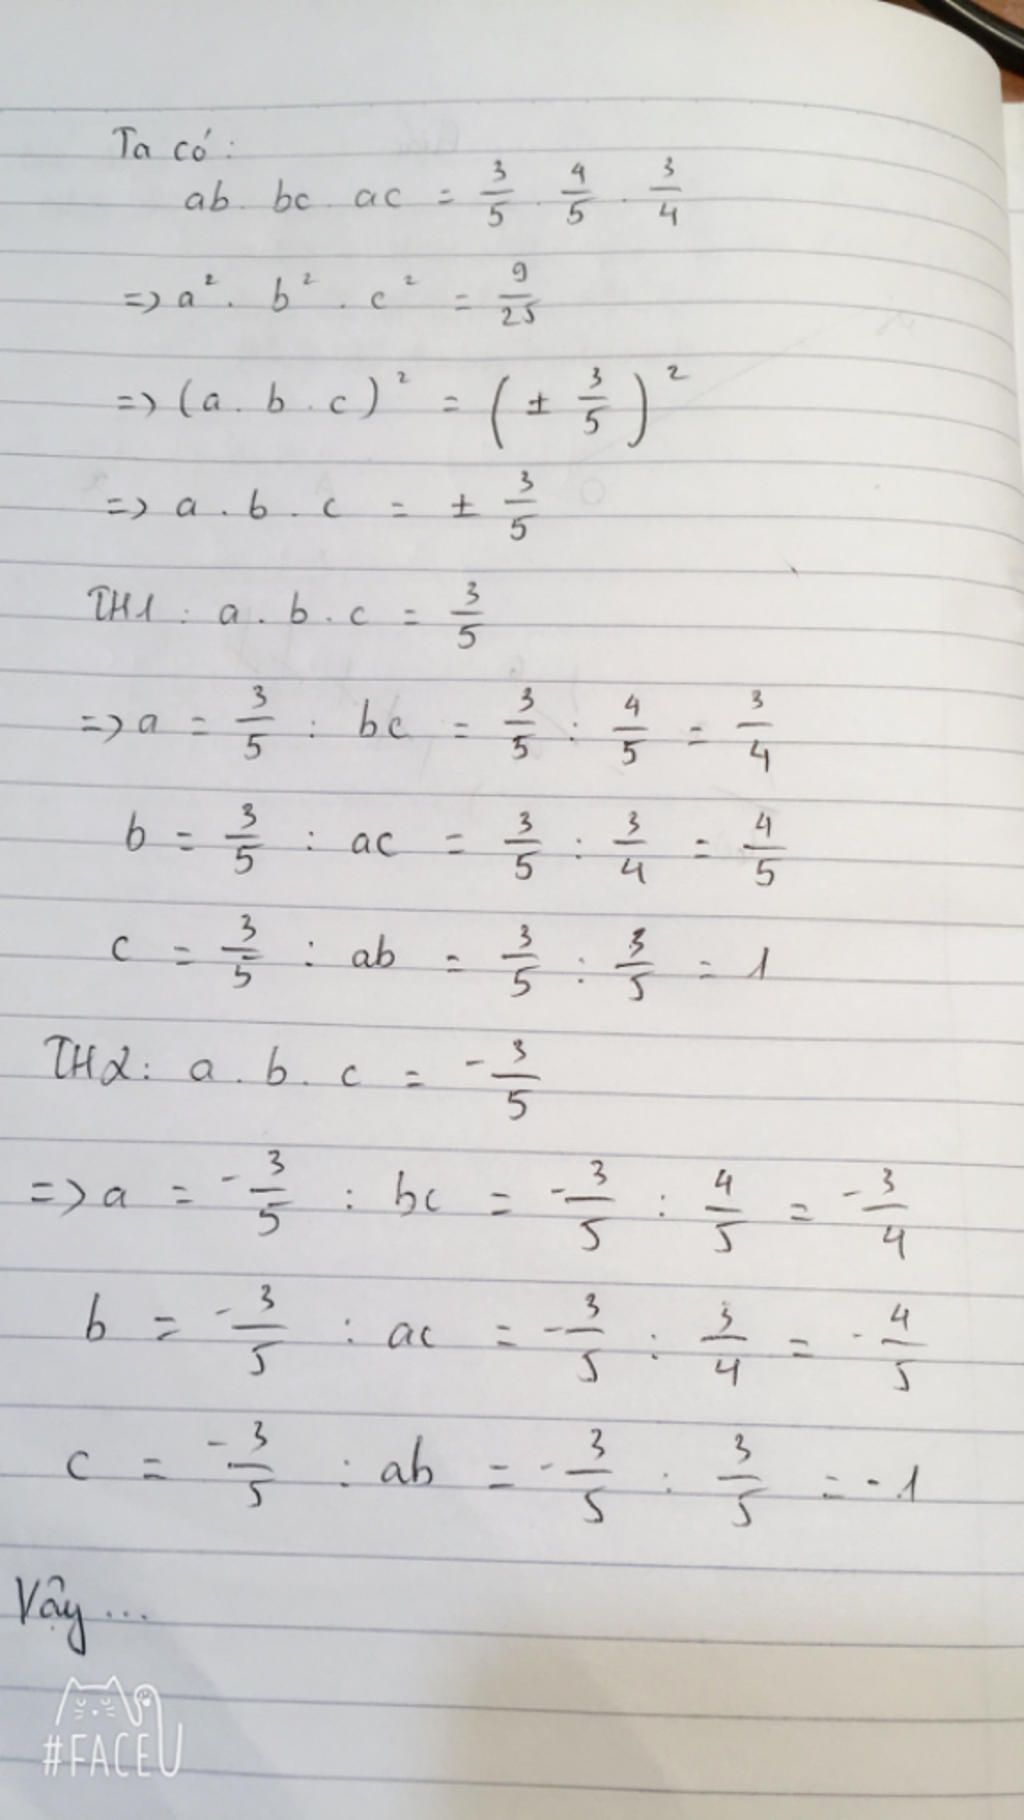 Ta có:
ab . bc . ac = 3/5 . 4/5 . 3/4
=> a² . b² . c² = 9/25
=> (a . b . c)² = (± 3/5)²
=> a . b . c = ± 3/5
TH1 : a . b . c = 3/5
=> a = 3/5 : bc = 3/5 : 4/5 = 3/4
b = 3/5 : ac = 3/5 : 3/4 = 4/5
c = 3/5 : ab = 3/5 : 3/5 = 1
TH2: a . b . c = -3/5
=> a = -3/5 : bc = -3/5 : 4/5 = -3/4
b = -3/5 : ac = -3/5 : 3/4 = -4/5
c = -3/5 : ab = -3/5 : 3/5 = -1
Vậy ...
#FACEU